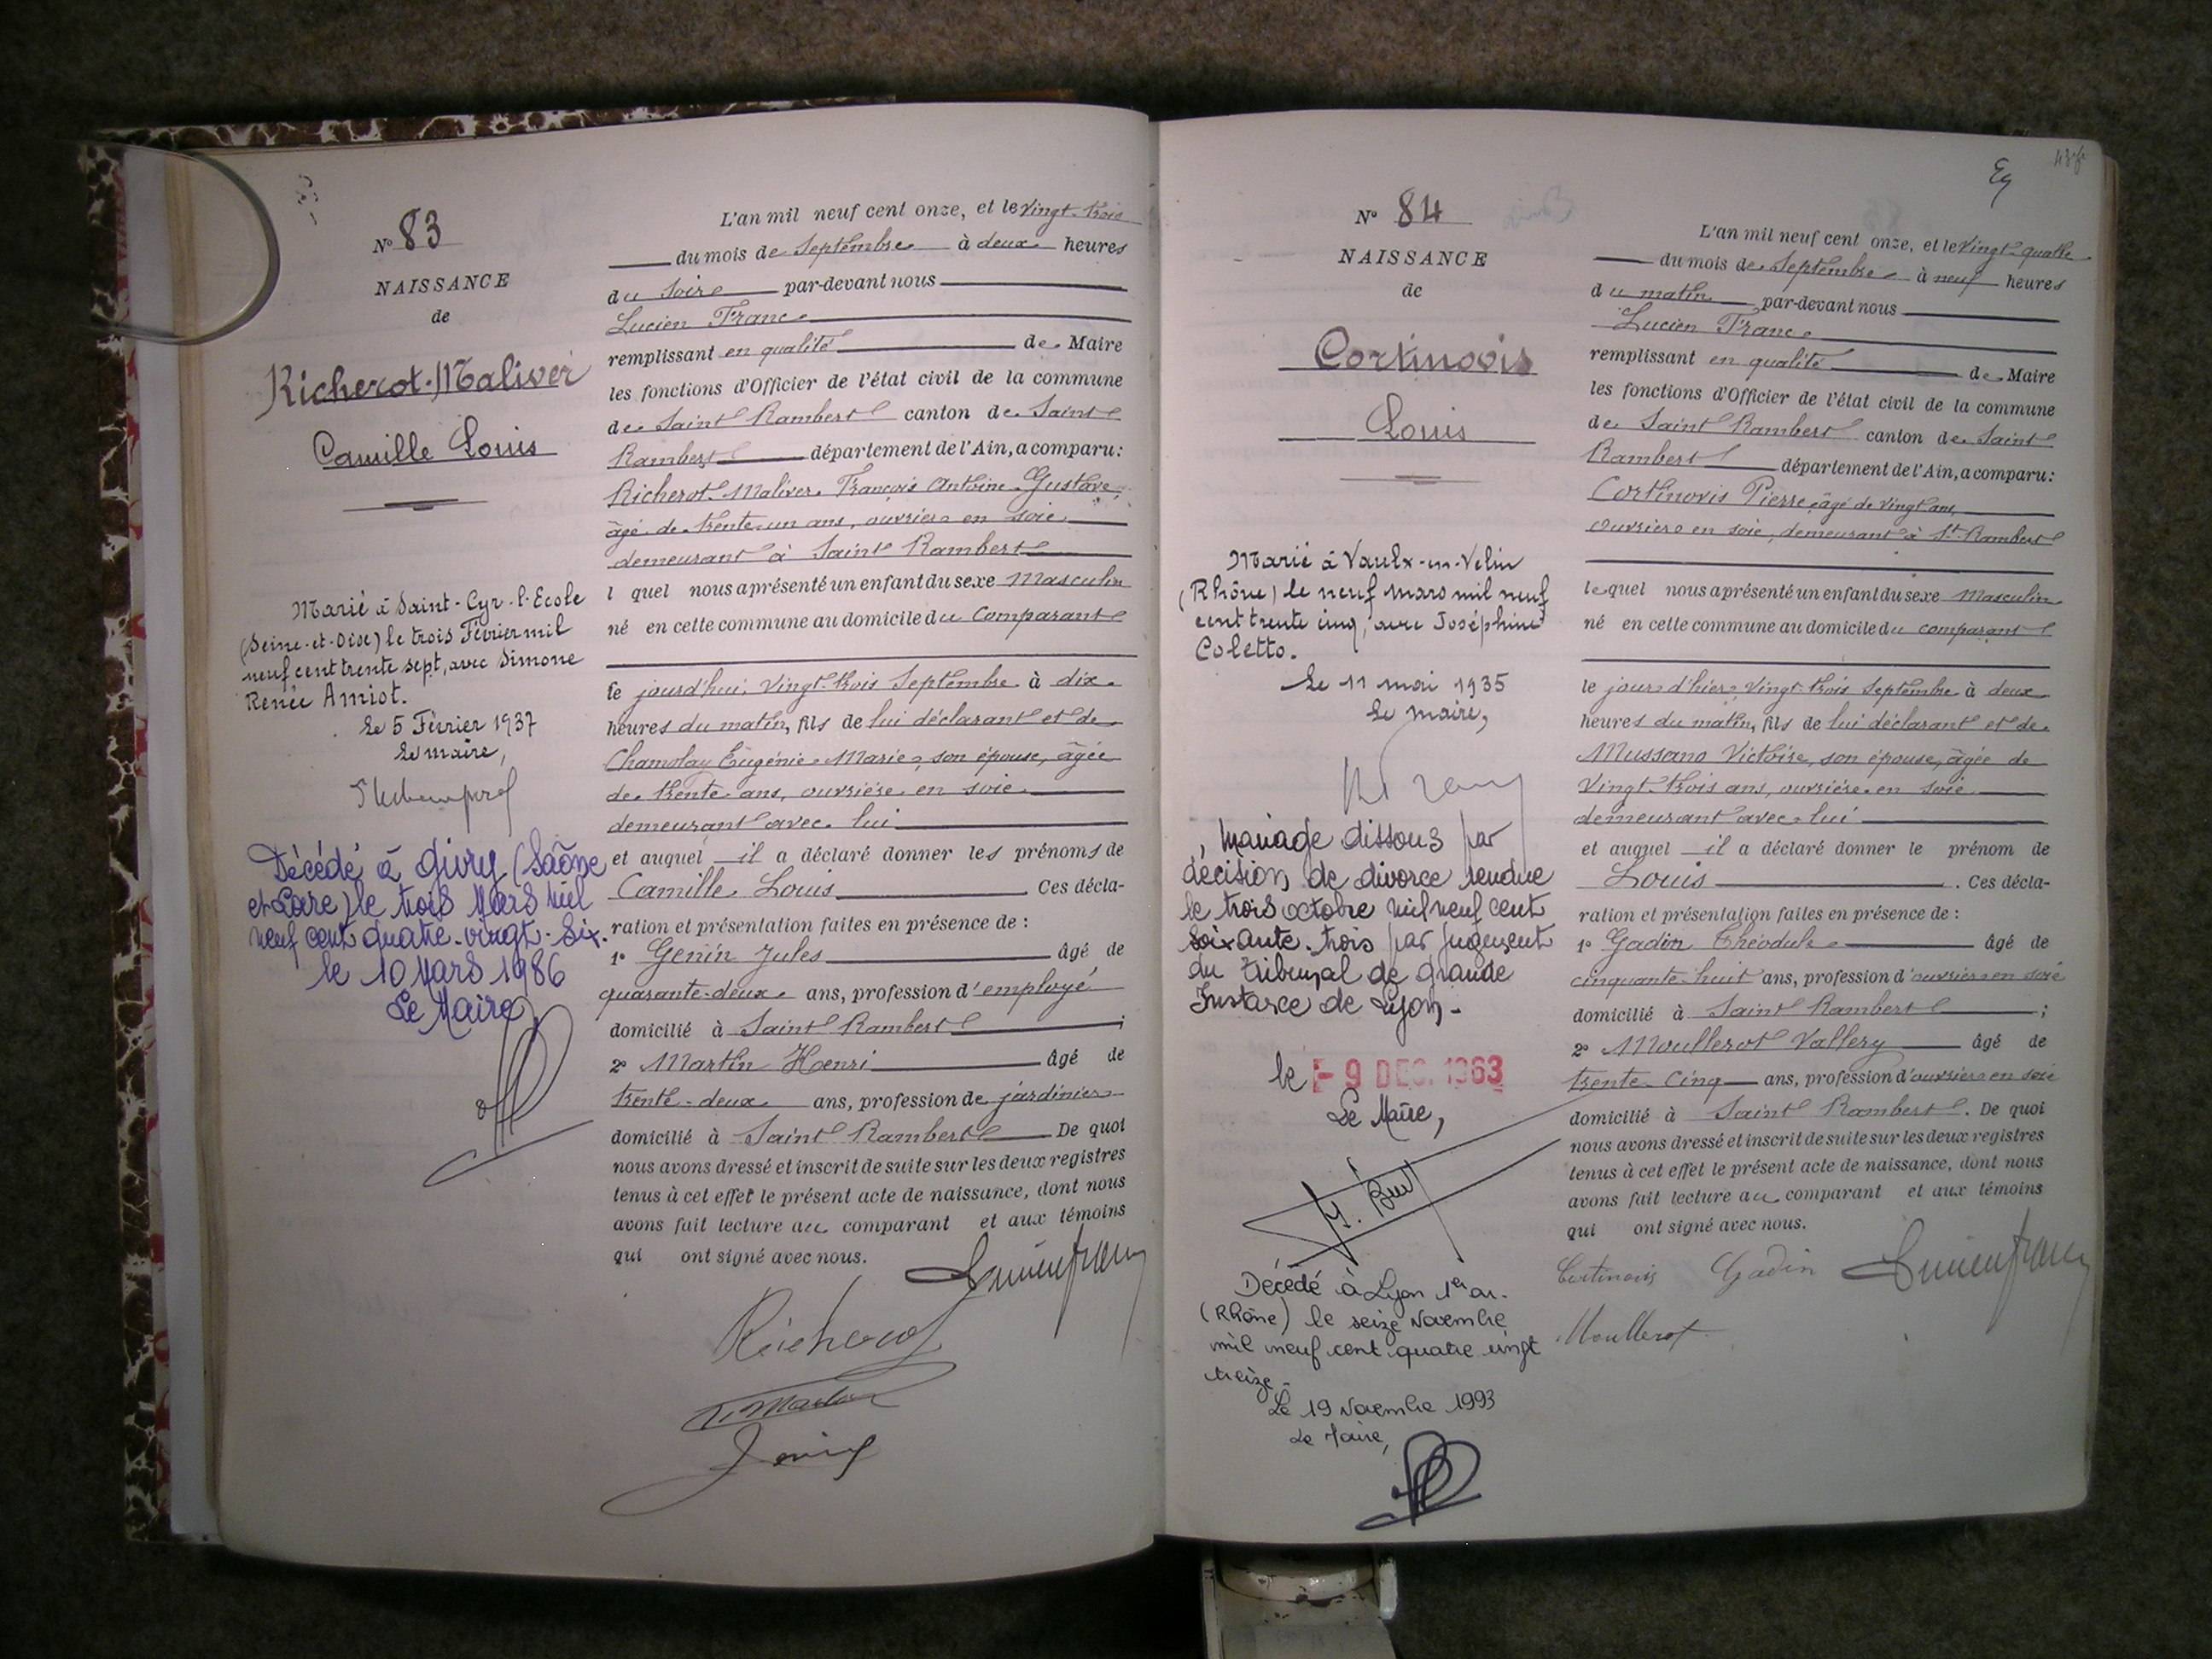 N° 83
NAISSANCE
de
Richerot-Maliver
Camille Louis
Marié à Saint-Cyr-l'Ecole
(Seine-et-Oise) le trois Février mil
neuf cent trente sept, avec Simone
Renée Amiot.
Le 5 Février 1937
Le maire,
Décédé à Givry (Saône
et Loire) le trois Mars mil
neuf cent quatre-vingt-six.
le 10 Mars 1986
Le Maire,
L'an mil neuf cent onze, et le vingt-trois
du mois de Septembre à deux heures
du soir par-devant nous
Lucien Franc
remplissant en qualité de Maire
les fonctions d'Officier de l'état civil de la commune
de Saint Rambert canton de Saint
Rambert département de l'Ain, a comparu:
Richerot-Maliver François Antoine Gustave,
âgé de trente-un ans, ouvrier en soie
demeurant à Saint Rambert
l quel nous a présenté un enfant du sexe Masculin
né en cette commune au domicile du Comparant
le jourd'hui, Vingt-trois Septembre à dix
heures du matin, fils de lui déclarant et de
Eugénie Marie, son épouse, âgée
de trente ans, ouvrière en soie
demeurant avec lui
et auquel il a déclaré donner les prénoms de
Camille Louis Ces décla-
ration et présentation faites en présence de :
1° Genin Jules âgé de
quarante-deux ans, profession d'employé
domicilié à Saint Rambert ;
2° Martin Henri âgé de
trente-deux ans, profession de jardinier
domicilié à Saint Rambert De quoi
nous avons dressé et inscrit de suite sur les deux registres
tenus à cet effet le présent acte de naissance, dont nous
avons fait lecture au comparant et aux témoins
qui ont signé avec nous.
Lucien Franc
Richerot
Martin
Genin
N° 84
NAISSANCE
de
Cortinovis
Louis
Marié à Vaulx-en-Velin
(Rhône) le neuf mars mil neuf
cent trente cinq, avec Joséphine
Coletto.
Le 11 mai 1935
Le maire,
Mariage dissous par
décision de divorce rendue
le trois octobre mil neuf cent
soixante-trois par jugement
du Tribunal de Grande
Instance de Lyon.-
le - 9 DEC. 1963
Le Maire,
Décédé à Lyon 1er ar.
(Rhône) le seize Novembre
mil neuf cent quatre vingt
treize.
Le 19 Novembre 1993
Le Maire,
L'an mil neuf cent onze, et le Vingt-quatre
du mois de Septembre à neuf heures
du matin par-devant nous
Lucien Franc
remplissant en qualité de Maire
les fonctions d'Officier de l'état civil de la commune
de Saint Rambert canton de Saint
Rambert département de l'Ain, a comparu:
Cortinovis Pierre, âgé de vingt ans,
ouvrier en soie, demeurant à St-Rambert
lequel nous a présenté un enfant du sexe Masculin
né en cette commune au domicile du comparant
le jour d'hier Vingt-trois Septembre à deux
heures du matin, fils de lui déclarant et de
Mussano Victoire, son épouse, âgée de
Vingt-trois ans, ouvrière en soie
demeurant avec lui
et auquel il a déclaré donner le prénom de
Louis . Ces décla-
ration et présentation faites en présence de :
1° Gadin Théodule âgé de
cinquante-huit ans, profession d'ouvrier en soie
domicilié à Saint Rambert ;
2° Moullerot Vallery âgé de
trente-cinq ans, profession d'ouvrier en soie
domicilié à Saint Rambert. De quoi
nous avons dressé et inscrit de suite sur les deux registres
tenus à cet effet le présent acte de naissance, dont nous
avons fait lecture au comparant et aux témoins
qui ont signé avec nous.
Cortinovis Gadin Lucien Franc
Moullerot